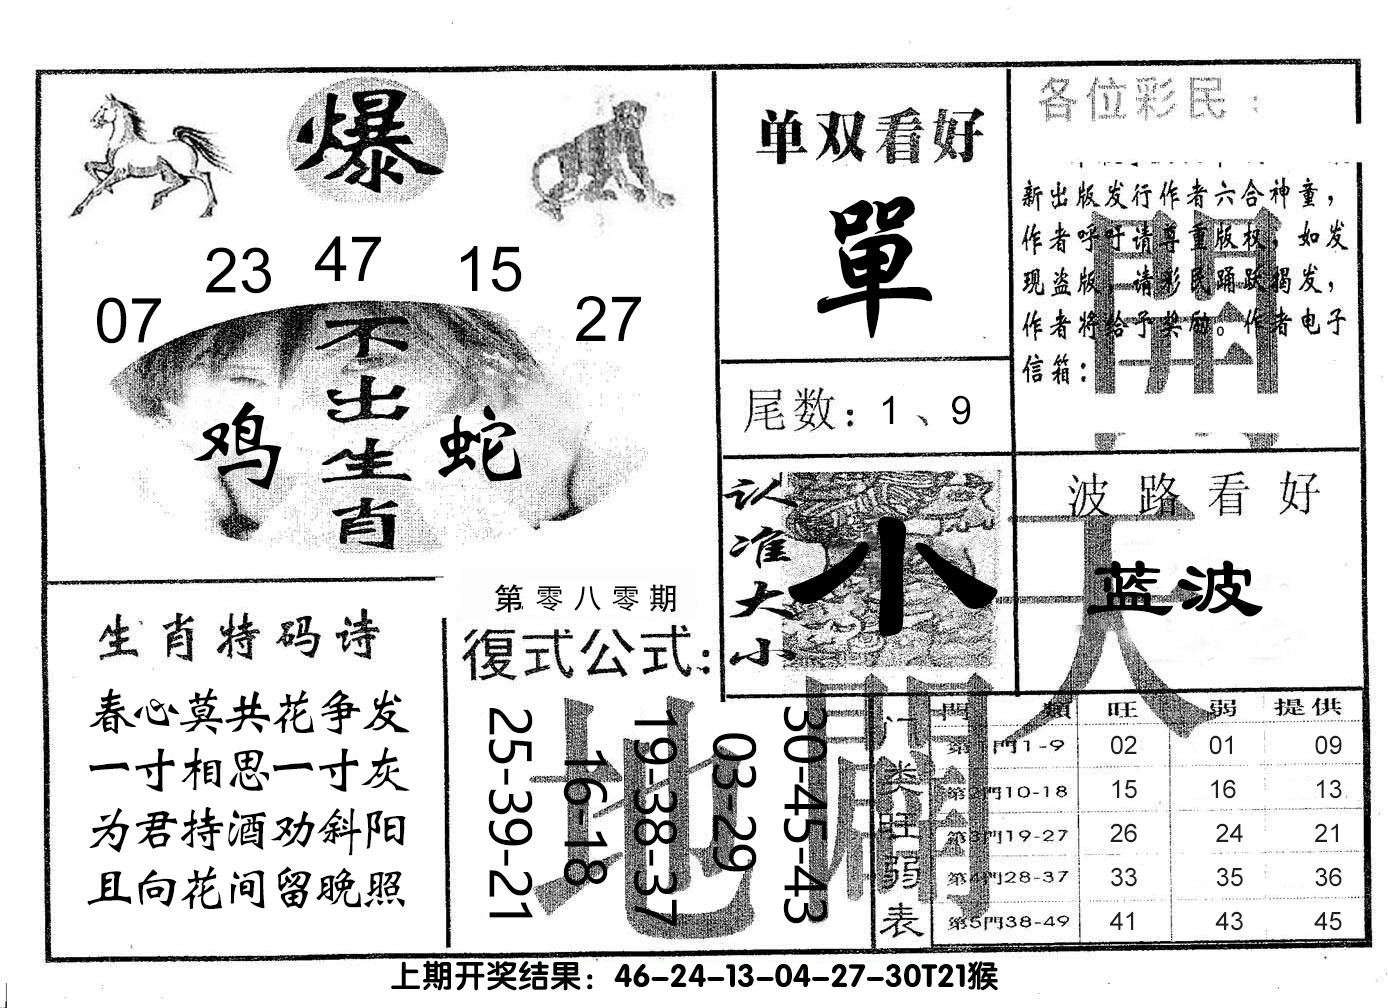 爆
07 23 47 15 27
不出生肖
鸡 蛇
单双看好
單
尾数：1、9
各位彩民：
新出版发行作者六合神童，
作者呼吁请尊重版权，如发
现盗版，请彩民踊跃揭发，
作者将给予奖励。作者电子
信箱：
認准大小
小
波路看好
蓝波
生肖特码诗
春心莫共花争发
一寸相思一寸灰
为君持酒劝斜阳
且向花间留晚照
第零八零期
復式公式：
25-39-21
16-18
19-38-37
03-29
30-45-43
开天地開
门类旺弱表
門類 旺 弱 提供
第1門1-9 02 01 09
第2門10-18 15 16 13
第3門19-27 26 24 21
第4門28-37 33 35 36
第5門38-49 41 43 45
上期开奖结果：46-24-13-04-27-30T21猴